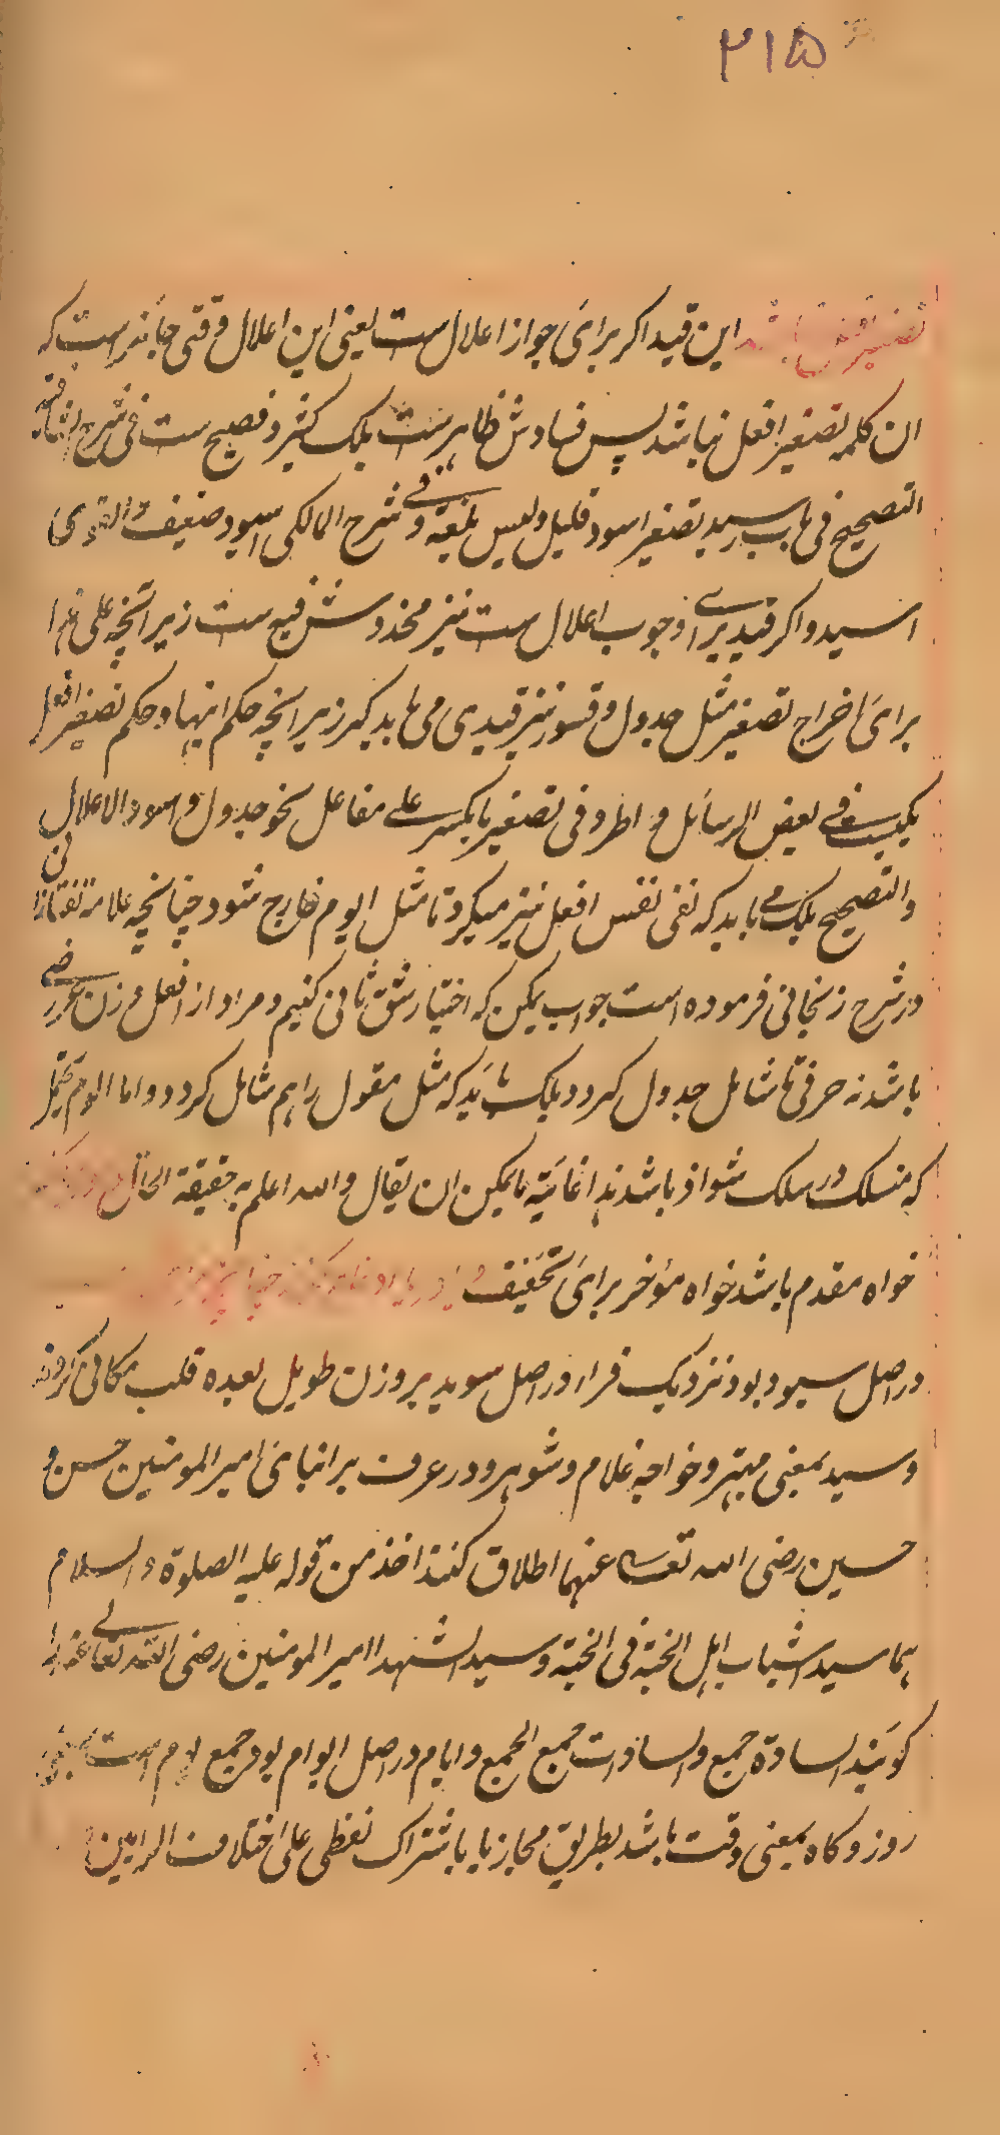 ۲۱۵
تصغیر افعل نباشد این قید اکر برای جواز اعلال ست یعنی این اعلال وقتی جایز است که
ان کلمه تصغیر افعل نباشد پس فسادش ظاهر ست بلک کثیر و فصیح ست فی شرح الشافیه
التصحیح فی باب اسید تصغیر اسود قلیل ولیس بلغة وفی شرح المالکی اسیود ضعیف والقوی
اسید و اکر قید برای وجوب اعلال ست نیز مخدوش فیه ست زیرانچه علی هذا
برای اخراج تصغیر مثل جدول و قسور نیز قیدی می باید کیر زیرانچه حکم اینها و حکم تصغیر افعل
یکیست فی بعض الرسائل و اطرد فی تصغیر ما یکسر علی مفاعل نحو جدول و اسود الاعلال
والتصحیح بلک می باید که نفی نفس افعل نیز میکرد تا مثل ایوم خارج شود چنانچه علامه تفتازانی
در شرح زنجانی فرموده است جواب یمکن که اختیار شق ثانی کنیم و مراد از افعل وزن عروضی
باشد نه صرفی تا شامل جدول کردد بلک شاید که مثل مقول را هم شامل کردد و اما ایوم
که منسلک در سلک شواذ باشد هذا غایة ما یمکن ان یقال والله اعلم بحقیقة الحال
خواه مقدم باشد خواه مؤخر برای تخفیف
در اصل سیود بود نزدیک فرا در اصل سوید بر وزن طویل بعده قلب مکانی کردند
و سید بمعنی مهتر و خواجه غلام و شوهر و در عرف بر ابنای امیر المومنین حسن و
حسین رضی الله تعالی عنهما اطلاق کنند اخذ من قوله علیه الصلوة و السلام
هما سید اشباب اهل الجنة فی الجنة و سید الشهدا امیر المومنین رضی الله تعالی عنه را
کویند السادة جمع والسادات جمع الجمع و ایام در اصل ایوام بود جمع یوم است بمعنی
روز و کاه بمعنی وقت باشد بطریق مجاز یا باشتراک لفظی علی اختلاف الرایین